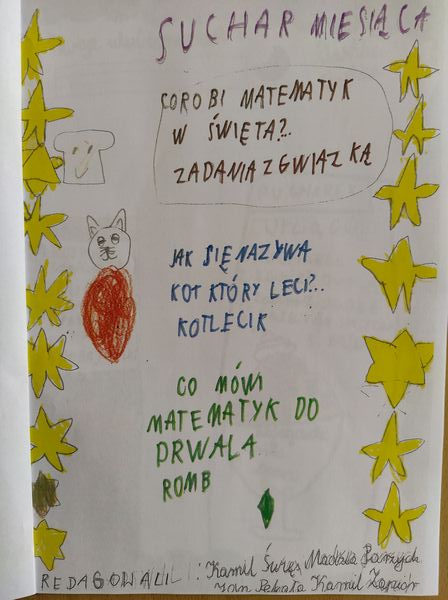 SUCHAR MIESIĄCA
CO ROBI MATEMATYK
W ŚWIĘTA?..
ZADANIA Z GWIAZKĄ
JAK SIĘ NAZYWA
KOT KTÓRY LECI?..
KOTLECIK
CO MÓWI
MATEMATYK DO
DRWALA
ROMB
REDAGOWALI: Kamil
Kamil